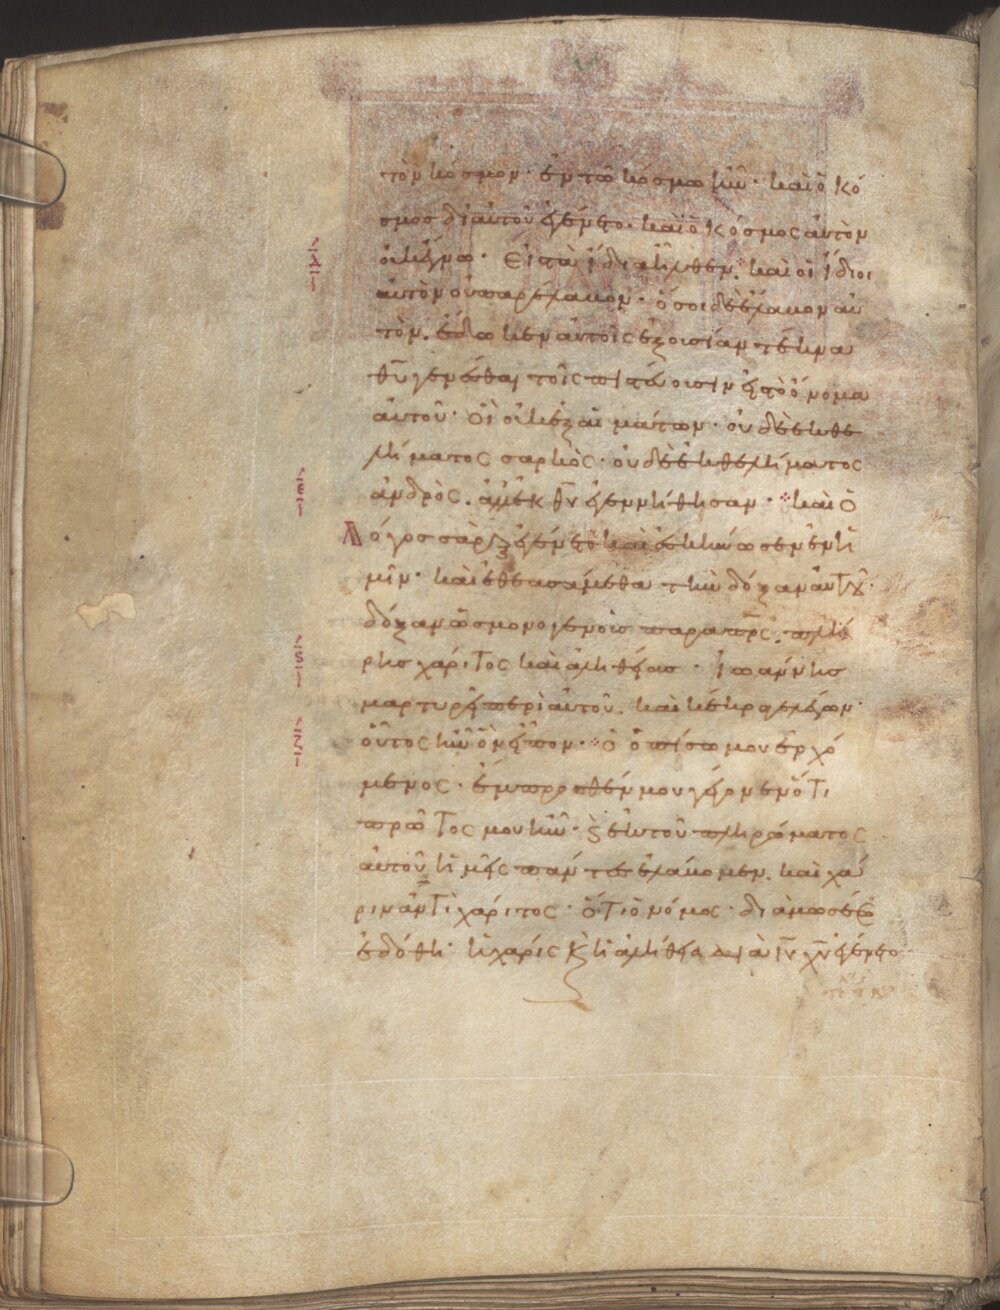 τὸν κόσμον· ἐν τῶ κόσμω ἦν· καὶ ὁ κό
σμος δι αὐτοῦ ἐγένετο· καὶ ὁ κόσμος αὐτὸν
οὐκ ἔγνω· Εἰς τὰ ἴδια ἦλθεν· καὶ οἱ ἴδιοι
δ
αὐτὸν οὐ παρέλαβον· ὅσοι δὲ ἔλαβον αὐ
τὸν· ἔδωκεν αὐτοῖς ἐξουσίαν τέκνα
θῦ γενέσθαι τοῖς πιστεύουσιν εἰς τὸ ὄνομα
αὐτοῦ· Οἳ οὐκ ἐξ αἱμάτων· οὐδὲ ἐκ θε
λήματος σαρκὸς· οὐδὲ ἐκ θελήματος
ε
ἀνδρὸς· ἀλλ ἐκ θῦ ἐγεννήθησαν· καὶ Ὁ
Λόγος σὰρξ ἐγένετο καὶ ἐσκήνωσεν ἐν ἡ
μῖν· καὶ ἐθεασάμεθα τὴν δόξαν αὐτοῦ·
δόξαν ὡς μονογενοῦς παρὰ πρς· πλή
ς
ρης χάριτος καὶ ἀληθείας· Ἰωάννης
μαρτυρεῖ περὶ αὐτοῦ· καὶ κέκραγε λέγων·
ζ
οὗτος ἦν ὃν εἶπον· Ὁ ὀπίσω μου ἐρχό
μενος· ἔμπροσθέν μου γέγονεν ὅτι
πρῶτος μου ἦν· Ϗ ἐκ τοῦ πληρώματος
αὐτοῦ ἡμεῖς πάντες ἐλάβομεν· καὶ χά
ριν ἀντὶ χάριτος· Ὅτι ὁ νόμος· διὰ μωσέως
ἐδόθη· ἡ χάρις ϗ ἡ ἀλήθεια διὰ ἰῦ χῦ ἐγένετο